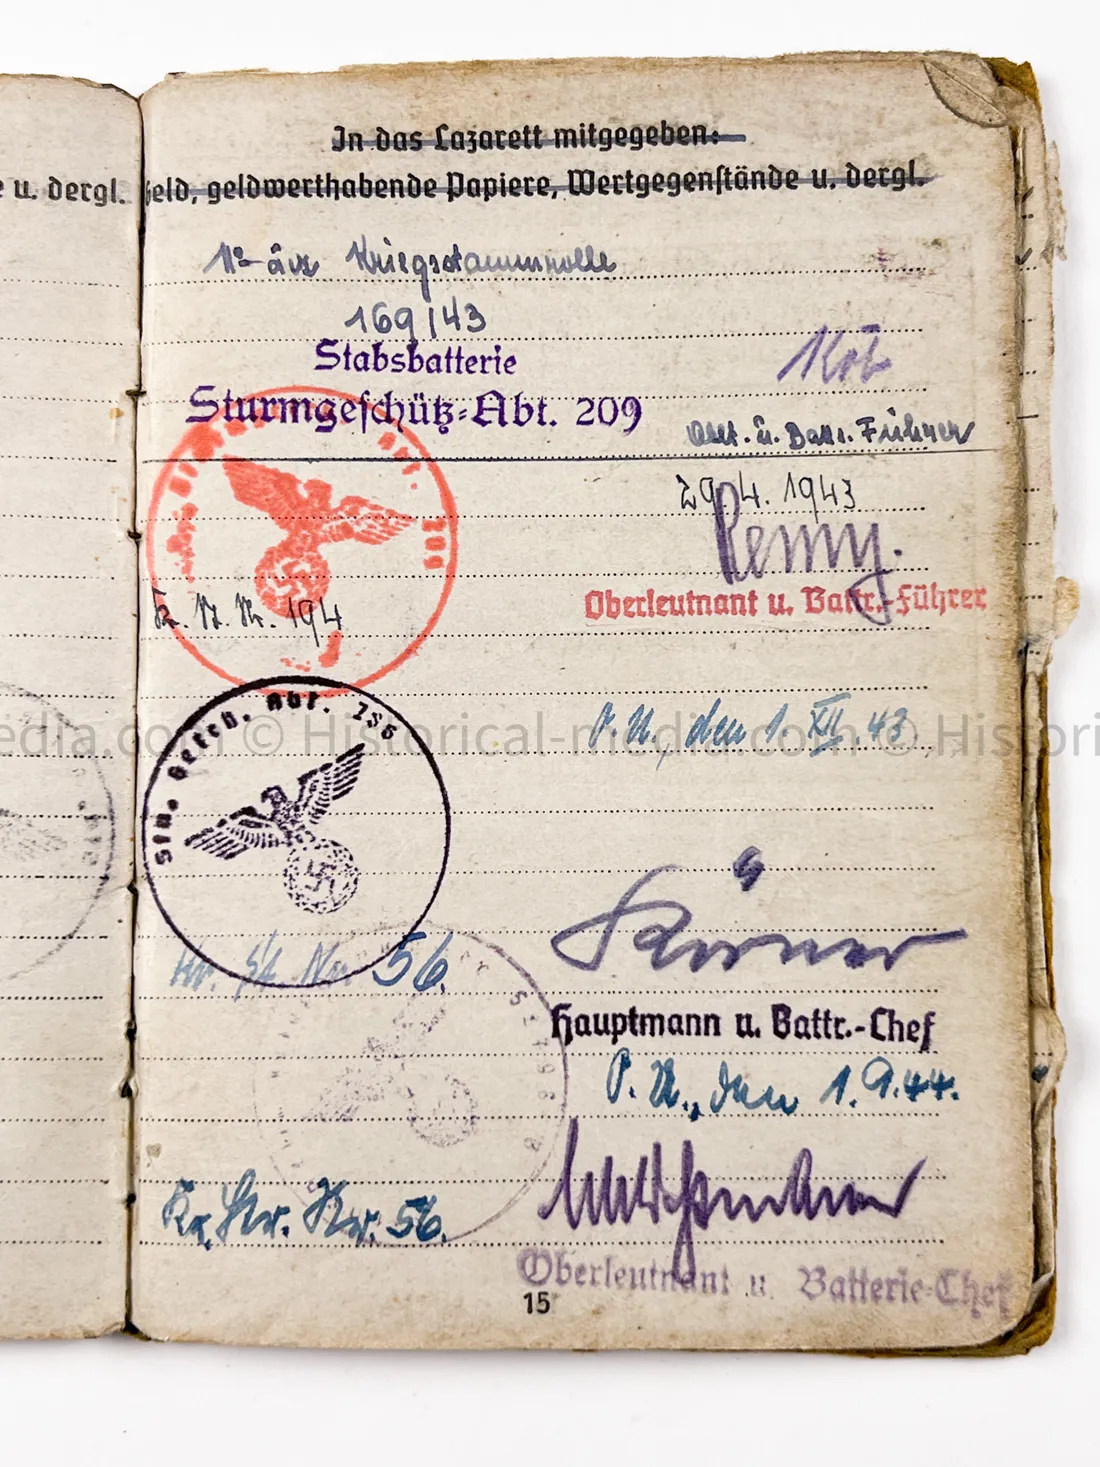 In das Lazarett mitgegeben:
e u. dergl.
eld, geldwerthabende Papiere, Wertgegenstände u. dergl.
Kriegsstammrolle
169/43
Stabsbatterie
Sturmgeschütz-Abt. 209
Oblt. u. Battr. Führer
29. 4. 1943
209
Oberleutnant u. Battr.-Führer
194
Stu. Gesch. Abt.
O. U., den 1. XII. 43
edia.com © Historical-media.com © Histori
Nr. 56.
Körner
Hauptmann u. Battr.-Chef
O. U., den 1. 9. 44.
Kr. St. Nr. 56.
Oberleutnant u. Batterie-Chef
15